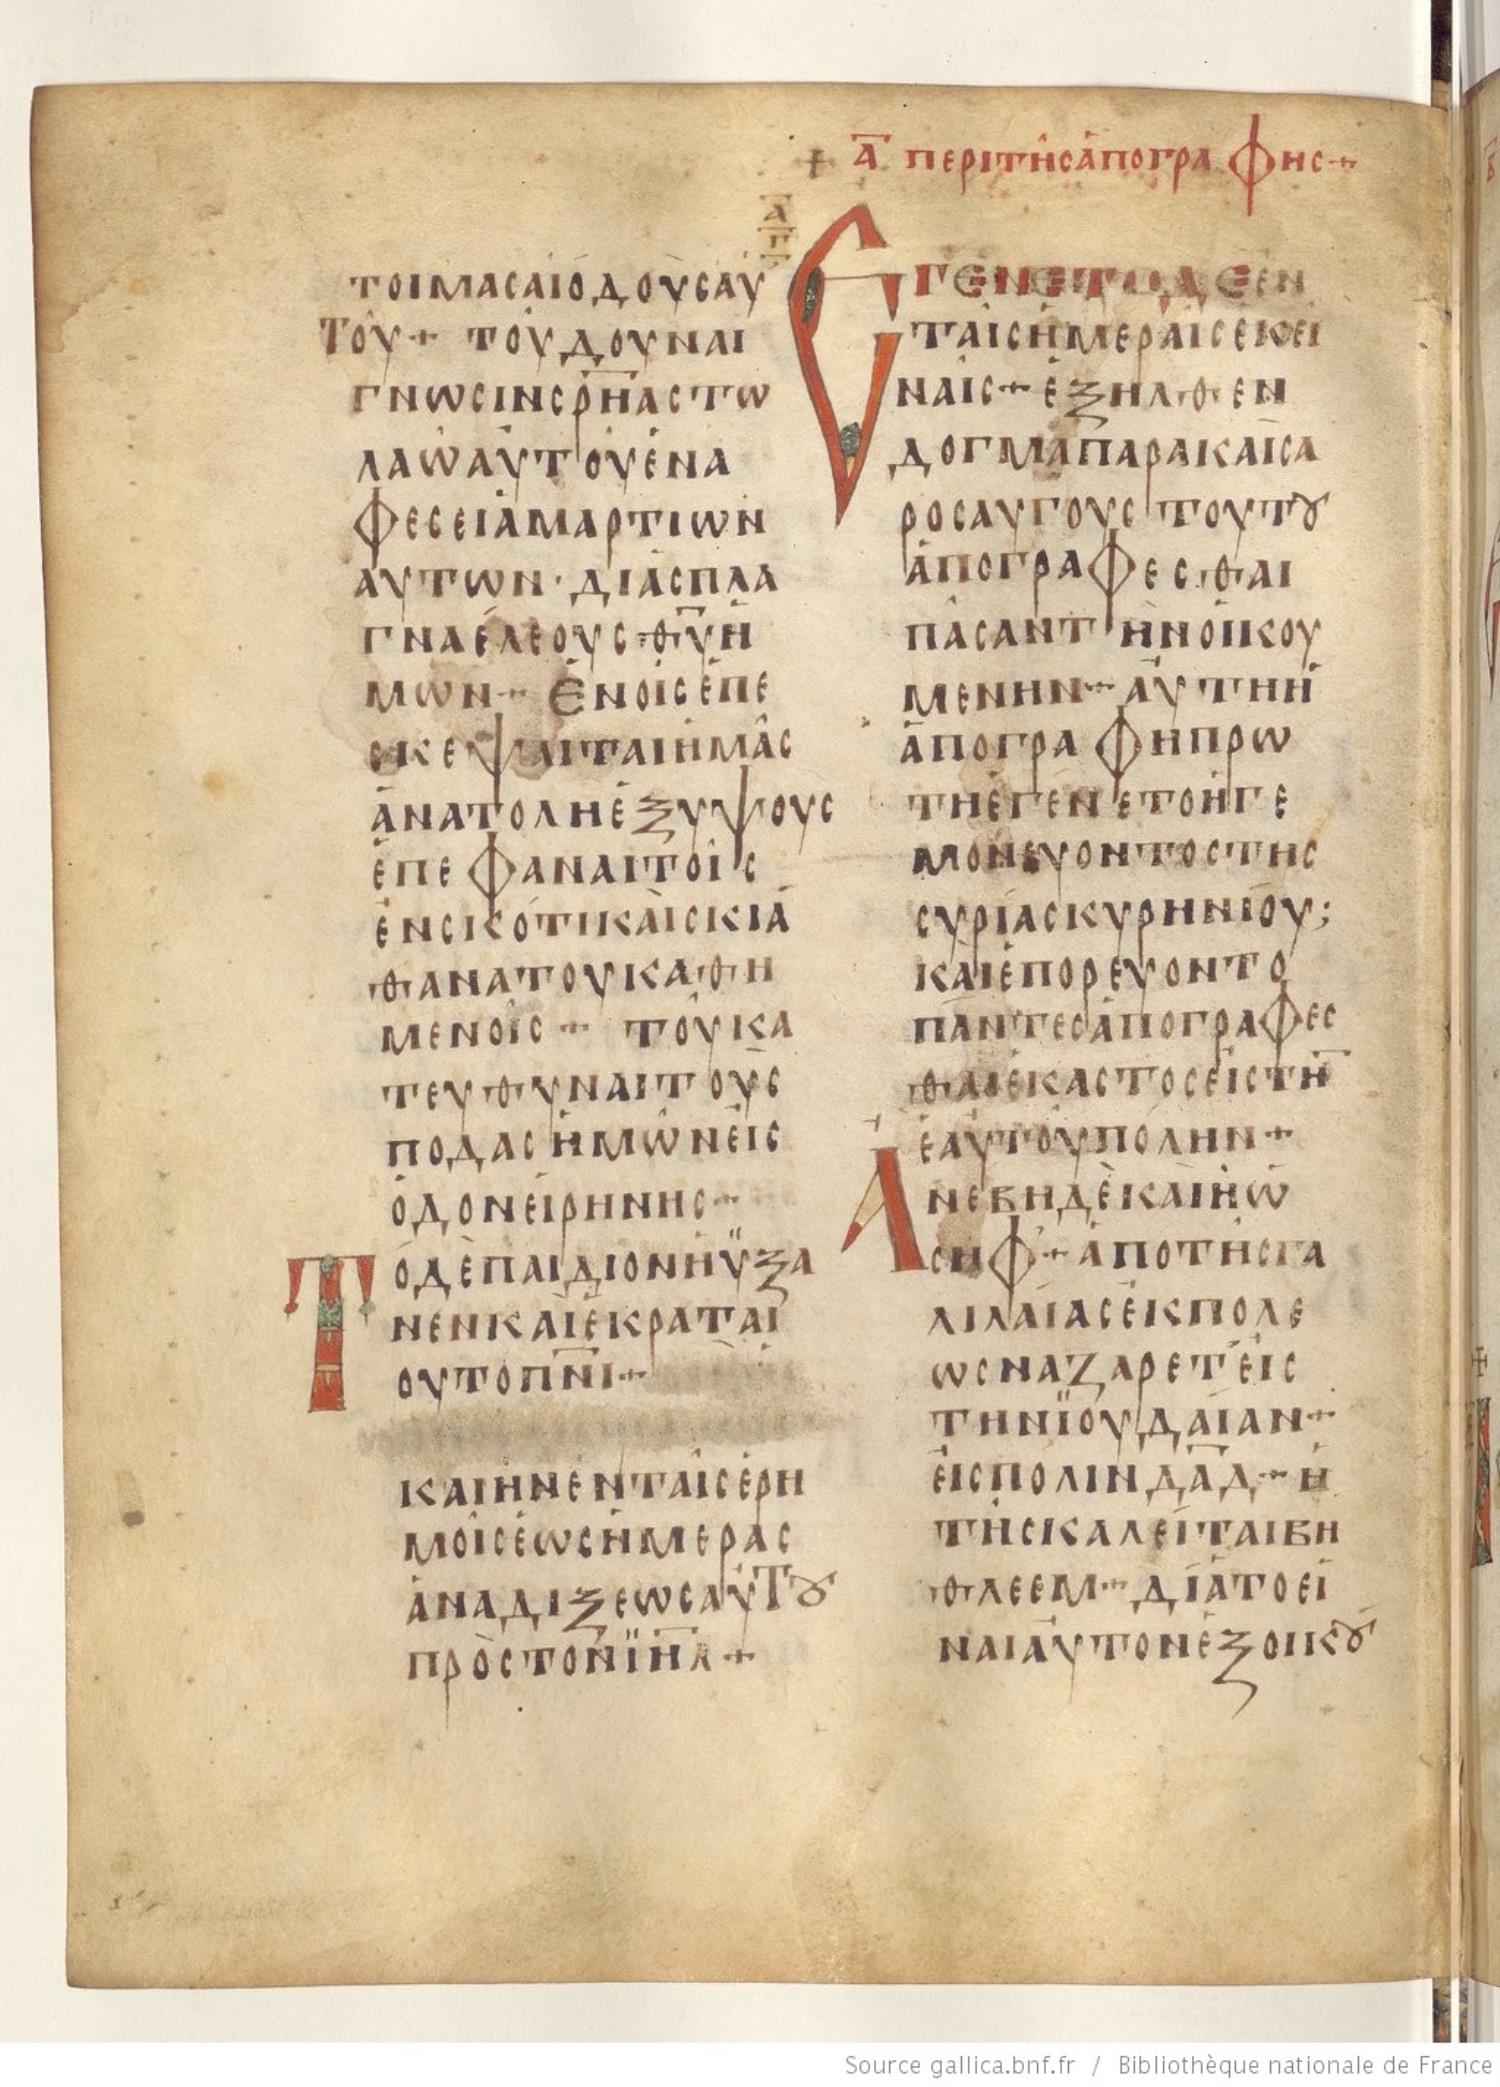 + Α ΠΕΡΙ ΤΗΣ ΑΠΟΓΡΑΦΗϹ +
Α
Γ
ΤΟΙΜΑϹΑΙΟΔΟΥϹΑΥ
ΤΟΥ + ΤΟΥΔΟΥΝΑΙ
ΓΝΩϹΙΝϹΡΗΑϹΤΩ
ΛΑΩΑΥΤΟΥΕΝΑ
ΦΕϹΕΙΑΜΑΡΤΙΩΝ
ΑΥΤΩΝ · ΔΙΑϹΠΛΑ
ΓΝΑΕΛΕΟΥϹΘΥΗ
ΜΩΝ + ΕΝΟΙϹΕΠΕ
ϹΚΕΨΑΙΤΑΙΗΜΑϹ
ΑΝΑΤΟΛΗΕΞΥΨΟΥϹ
ΕΠΕΦΑΝΑΙΤΟΙϹ
ΕΝϹΚΟΤΙΚΑΙϹΚΙΑ
ΘΑΝΑΤΟΥΚΑΘΗ
ΜΕΝΟΙϹ + ΤΟΥΚΑ
ΤΕΥΘΥΝΑΙΤΟΥϹ
ΠΟΔΑϹΗΜΩΝΕΙϹ
ΟΔΟΝΕΙΡΗΝΗϹ +
ΤΟΔΕΠΑΙΔΙΟΝΗΥΞΑ
ΝΕΝΚΑΙΕΚΡΑΤΑΙ
ΟΥΤΟΠΝΙ +
ΚΑΙΗΝΕΝΤΑΙϹΕΡΗ
ΜΟΙϹΕΩϹΗΜΕΡΑϹ
ΑΝΑΔΙΞΕΩϹΑΥΤȢ
ΠΡΟϹΤΟΝΪΗΛ +
ΕΓΕΝΕΤΟΔΕΕΝ
ΤΑΙϹΗΜΕΡΑΙϹΕΚΕΙ
ΝΑΙϹ + ΕΞΗΛΘΕΝ
ΔΟΓΜΑΠΑΡΑΚΑΙϹΑ
ΡΟϹΑΥΓΟΥϹΤΟΥΤȢ
ΑΠΟΓΡΑΦΕϹΘΑΙ
ΠΑϹΑΝΤΗΝΟΙΚΟΥ
ΜΕΝΗΝ + ΑΥΤΗΗ
ΑΠΟΓΡΑΦΗΠΡΩ
ΤΗΕΓΕΝΕΤΟΗΓΕ
ΜΟΝΕΥΟΝΤΟϹΤΗϹ
ϹΥΡΙΑϹΚΥΡΗΝΙΟΥ;
ΚΑΙΕΠΟΡΕΥΟΝΤΟ
ΠΑΝΤΕϹΑΠΟΓΡΑΦΕϹ
ΘΑΙΕΚΑϹΤΟϹΕΙϹΤΗ̅
ΕΑΥΤΟΥΠΟΛΗΝ +
ΑΝΕΒΗΔΕΚΑΙΗΩ
ϹΗΦ + ΑΠΟΤΗϹΓΑ
ΛΙΛΑΙΑϹΕΚΠΟΛΕ
ΩϹΝΑΖΑΡΕΤΕΙϹ
ΤΗΝΪΟΥΔΑΙΑΝ +
ΕΙϹΠΟΛΙΝΔΑΔ + Η
ΤΗϹΚΑΛΕΙΤΑΙΒΗ
ΘΛΕΕΜ + ΔΙΑΤΟΕΙ
ΝΑΙΑΥΤΟΝΕΞΟΙΚȢ
Source gallica.bnf.fr / Bibliothèque nationale de France